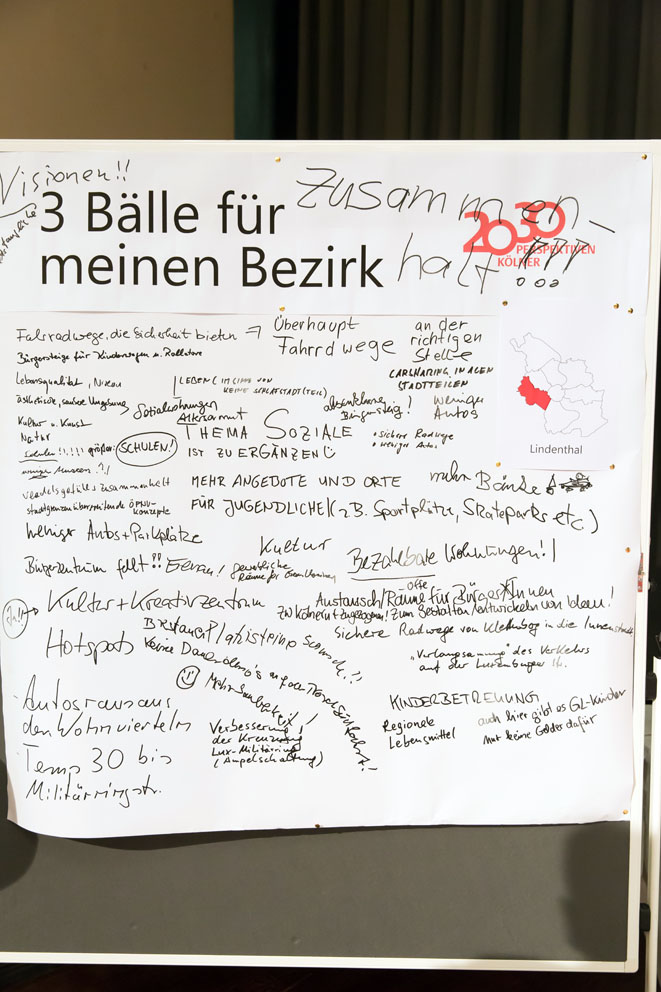 Visionen!!
3 Bälle für
meinen Bezirk
Zusammen-
halt!!!
2030
PERSPEKTIVEN
KÖLNER
Lindenthal
Fahrradwege, die Sicherheit bieten → Überhaupt
Fahrrdwege
an der
richtigen
Stelle
Bürgersteige für Kinderwagen u. Rollatore
CARSHARING IN ALLEN
STADTTEILEN
Lebensqualität,
LEBEN (IM SINNE VON
KEINE SCHLAFSTADT(TEIL)
ästhetische, saubere Umgebung
Sozialwohnungen
Altersarmut
Bürgersteig!
weniger
Autos
Kultur u. Kunst
Natur
Schulen!!!!! größer:
SCHULEN!
THEMA SOZIALE
IST ZU ERGÄNZEN
• sichere Radwege
• weniger Autos
weniger Museen!!
Zusammenhelt
stadtgrenzenüberschreitende ÖPNV-
konzepte
MEHR ANGEBOTE UND ORTE
FÜR JUGENDLICHE (z.B. Sportplätze, Skateparks etc.)
mehr Bänke
weniger Autos + Parkplätze
Kultur
Bürgerzentrum fehlt!! Genau!
Bezahlbare Wohnungen!
Ja!!
→ Kultur + Kreativzentrum
offe
Austausch/Räume für Bürger*Innen
zw Kölnern + Zugezogenen! Zum Gestalten/entwickeln von Ideen!
Hotspots
sichere Radwege von Klettenberg in die Innenstadt
"Verlangsamung" des Verkehrs
auf der Luxemburger Str.
Mehr Sauberkeit!
Autos raus aus
den Wohnvierteln
Verbesserung
der Kreuzung
Lux-Militärring
(Ampelschaltung)
KINDERBETREUUNG
Regionale
Lebensmittel
auch hier gibt es GL-Kinder
nur keine Gelder dafür
Temp 30 bis
Militärringstr.